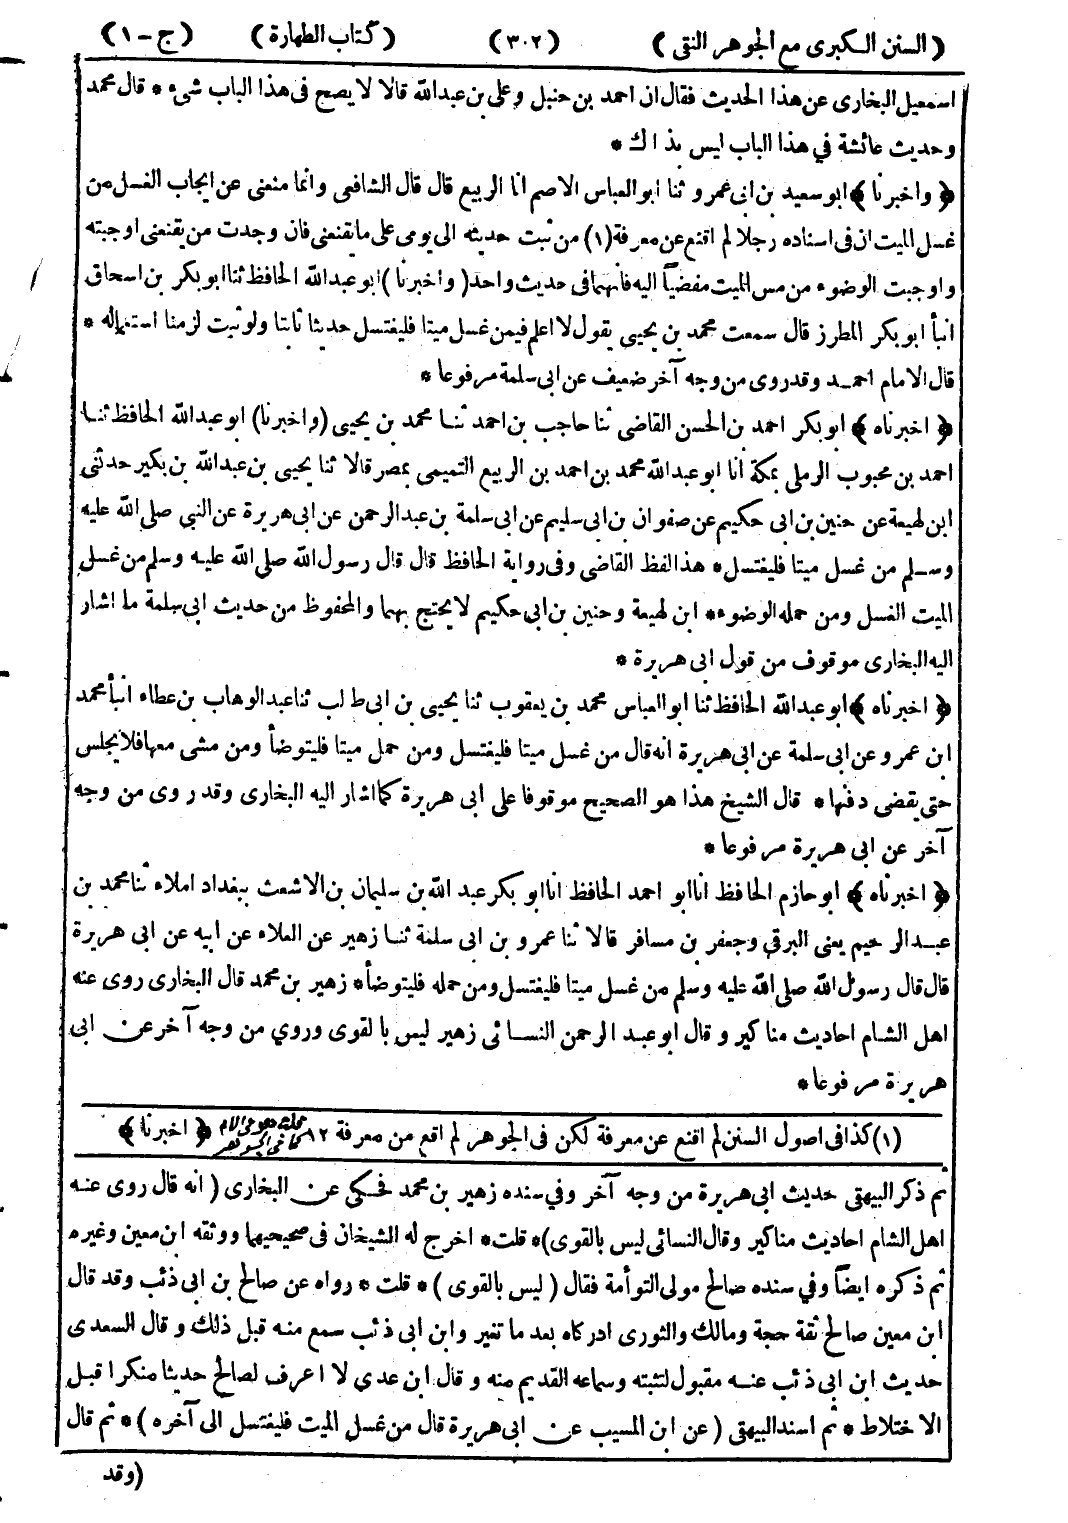 (السنن الكبرى مع الجوهر النقى) (٣٠٢) (كتاب الطهارة) (ج-١)
اسمعيل البخارى عن هذا الحديث فقال ان احمد بن حنبل وعلى بن عبدالله قالا لا يصح فى هذا الباب شىء * قال محمد
وحديث عائشة في هذا الباب ليس بذاك *
﴿واخبرنا﴾ ابو سعيد بن ابى عمرو ثنا ابو العباس الاصم انا الربيع قال قال الشافعى وانما منعنى عن ايجاب الغسل من
غسل الميت ان فى اسناده رجلا لم اقنع عن معرفة (١) من ثبت حديثه الى يومى على ما يقنعنى فان وجدت من يقنعنى اوجبته
واوجبت الوضوء من مس الميت مفضيا اليه فانهما فى حديث واحد (واخبرنا) ابو عبدالله الحافظ ثنا ابو بكر بن اسحاق
انبأ ابو بكر المطرز قال سمعت محمد بن يحيى يقول لا اعلم فيمن غسل ميتا فليغتسل حديثا ثابتا ولو ثبت لزمنا استعماله *
قال الامام احمد وقد روى من وجه آخر ضعيف عن ابى سلمة مرفوعا *
﴿اخبرناه﴾ ابو بكر احمد بن الحسن القاضى ثنا حاجب بن احمد ثنا محمد بن يحيى (واخبرنا) ابو عبدالله الحافظ ثنا
احمد بن محبوب الرملى بمكة أنا ابو عبدالله محمد بن احمد بن الربيع التميمى بمصر قالا ثنا يحيى بن عبدالله بن بكير حدثنى
ابن لهيعة عن حنين بن ابى حكيم عن صفوان بن ابى سليم عن ابى سلمة بن عبدالرحمن عن ابى هريرة عن النبي صلى الله عليه
وسلم من غسل ميتا فليغتسل * هذا لفظ القاضى وفى رواية الحافظ قال قال رسول الله صلى الله عليه وسلم من غسل
الميت الغسل ومن حمله الوضوء * ابن لهيعة وحنين بن ابى حكيم لا يحتج بهما والمحفوظ من حديث ابى سلمة ما اشار
اليه البخارى موقوف من قول ابى هريرة *
﴿اخبرناه﴾ ابو عبدالله الحافظ ثنا ابو العباس محمد بن يعقوب ثنا يحيى بن ابى طالب ثنا عبدالوهاب بن عطاء انبأ محمد
ابن عمرو عن ابى سلمة عن ابى هريرة انه قال من غسل ميتا فليغتسل ومن حمل ميتا فليتوضأ ومن مشى معها فلا يجلس
حتى يقضى دفنها * قال الشيخ هذا هو الصحيح موقوفا على ابى هريرة كما اشار اليه البخارى وقد روى من وجه
آخر عن ابى هريرة مرفوعا *
﴿اخبرناه﴾ ابو حازم الحافظ انا ابو احمد الحافظ انا ابو بكر عبد الله بن سليمان بن الاشعث ببغداد املاء ثنا محمد بن
عبد الرحيم يعنى البرقى وجعفر بن مسافر قالا ثنا عمرو بن ابى سلمة ثنا زهير عن العلاء عن ابيه عن ابى هريرة
قال قال رسول الله صلى الله عليه وسلم من غسل ميتا فليغتسل ومن حمله فليتوضأ * زهير بن محمد قال البخارى روى عنه
اهل الشام احاديث مناكير وقال ابو عبد الرحمن النسائى زهير ليس بالقوى وروي من وجه آخر عن ابى
هريرة مرفوعا *
(١) كذا فى اصول السنن لم اقنع عن معرفة لكن فى الجوهر لم اقع من معرفة ١٢ ﴿اخبرنا﴾
ثم ذكر البيهقى حديث ابى هريرة من وجه آخر وفي سنده زهير بن محمد فحكى عن البخارى (انه قال روى عنه
اهل الشام احاديث مناكير وقال النسائى ليس بالقوى) * قلت * اخرج له الشيخان فى صحيحيهما ووثقه ابن معين وغيره
ثم ذكره ايضاً وفي سنده صالح مولى التوأمة فقال (ليس بالقوى) * قلت * رواه عن صالح بن ابى ذئب وقد قال
ابن معين صالح ثقة حجة ومالك والثورى ادركاه بعد ما تغير وابن ابى ذئب سمع منه قبل ذلك وقال السعدى
حديث ابن ابى ذئب عنه مقبول لتثبته وسماعه القديم منه وقال ابن عدي لا اعرف لصالح حديثا منكرا قبل
الاختلاط * ثم اسند البيهقى (عن ابن المسيب عن ابى هريرة قال من غسل الميت فليغتسل الى آخره) * ثم قال
(وقد